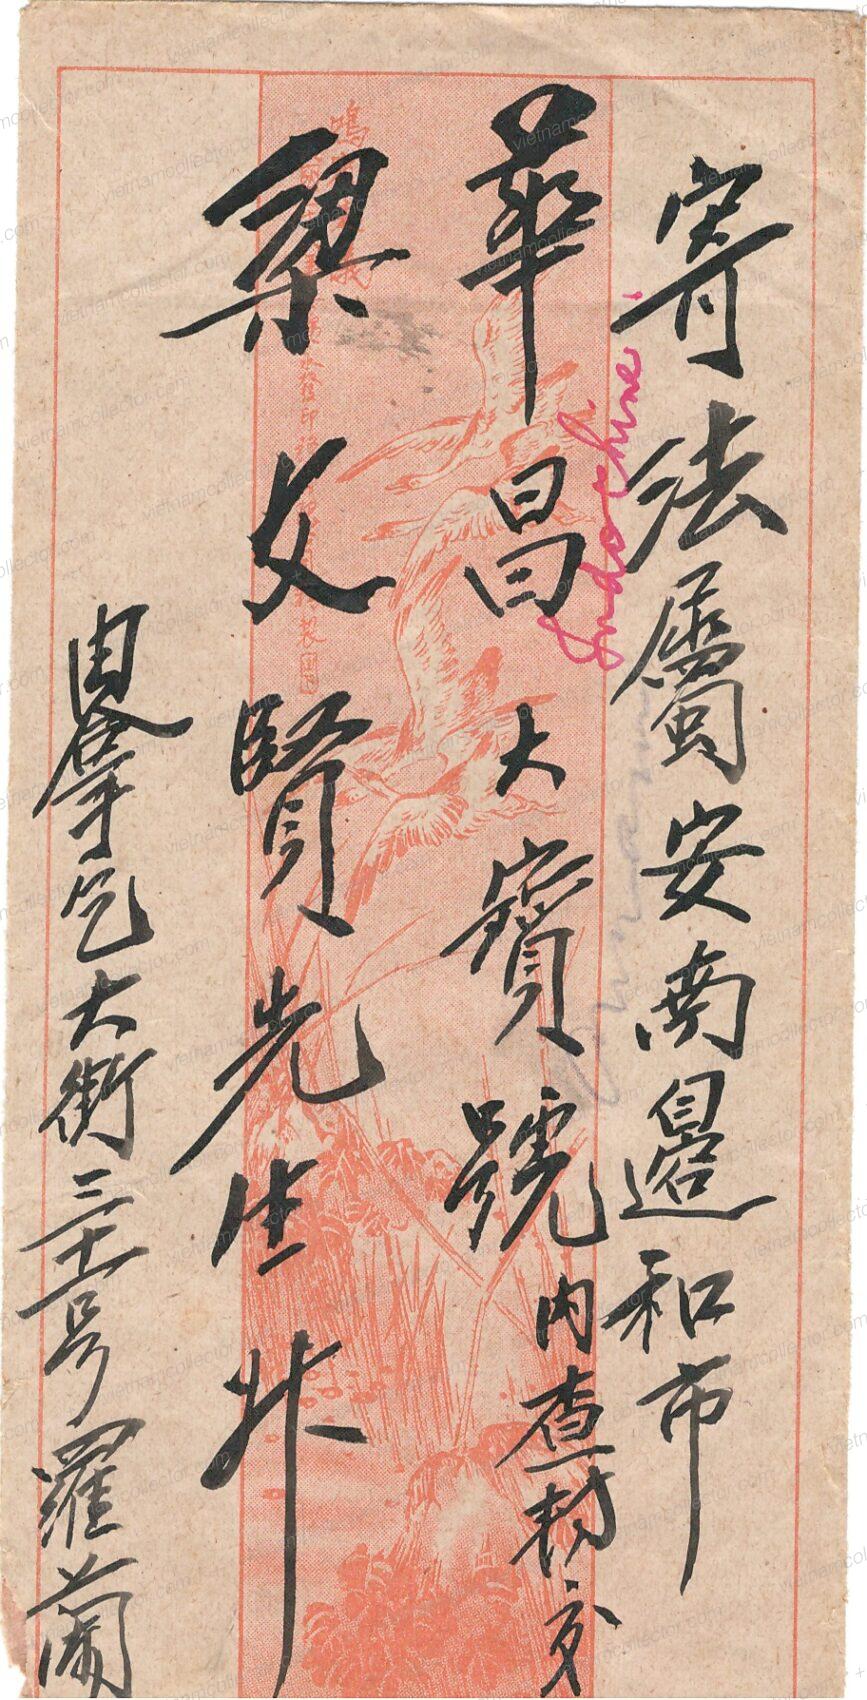 寄法屬安南邊和市
華昌大寶號內查轉交
梁文賢先生升
由大街三十二号羅蘭
Indochine
vietnamcollector.com